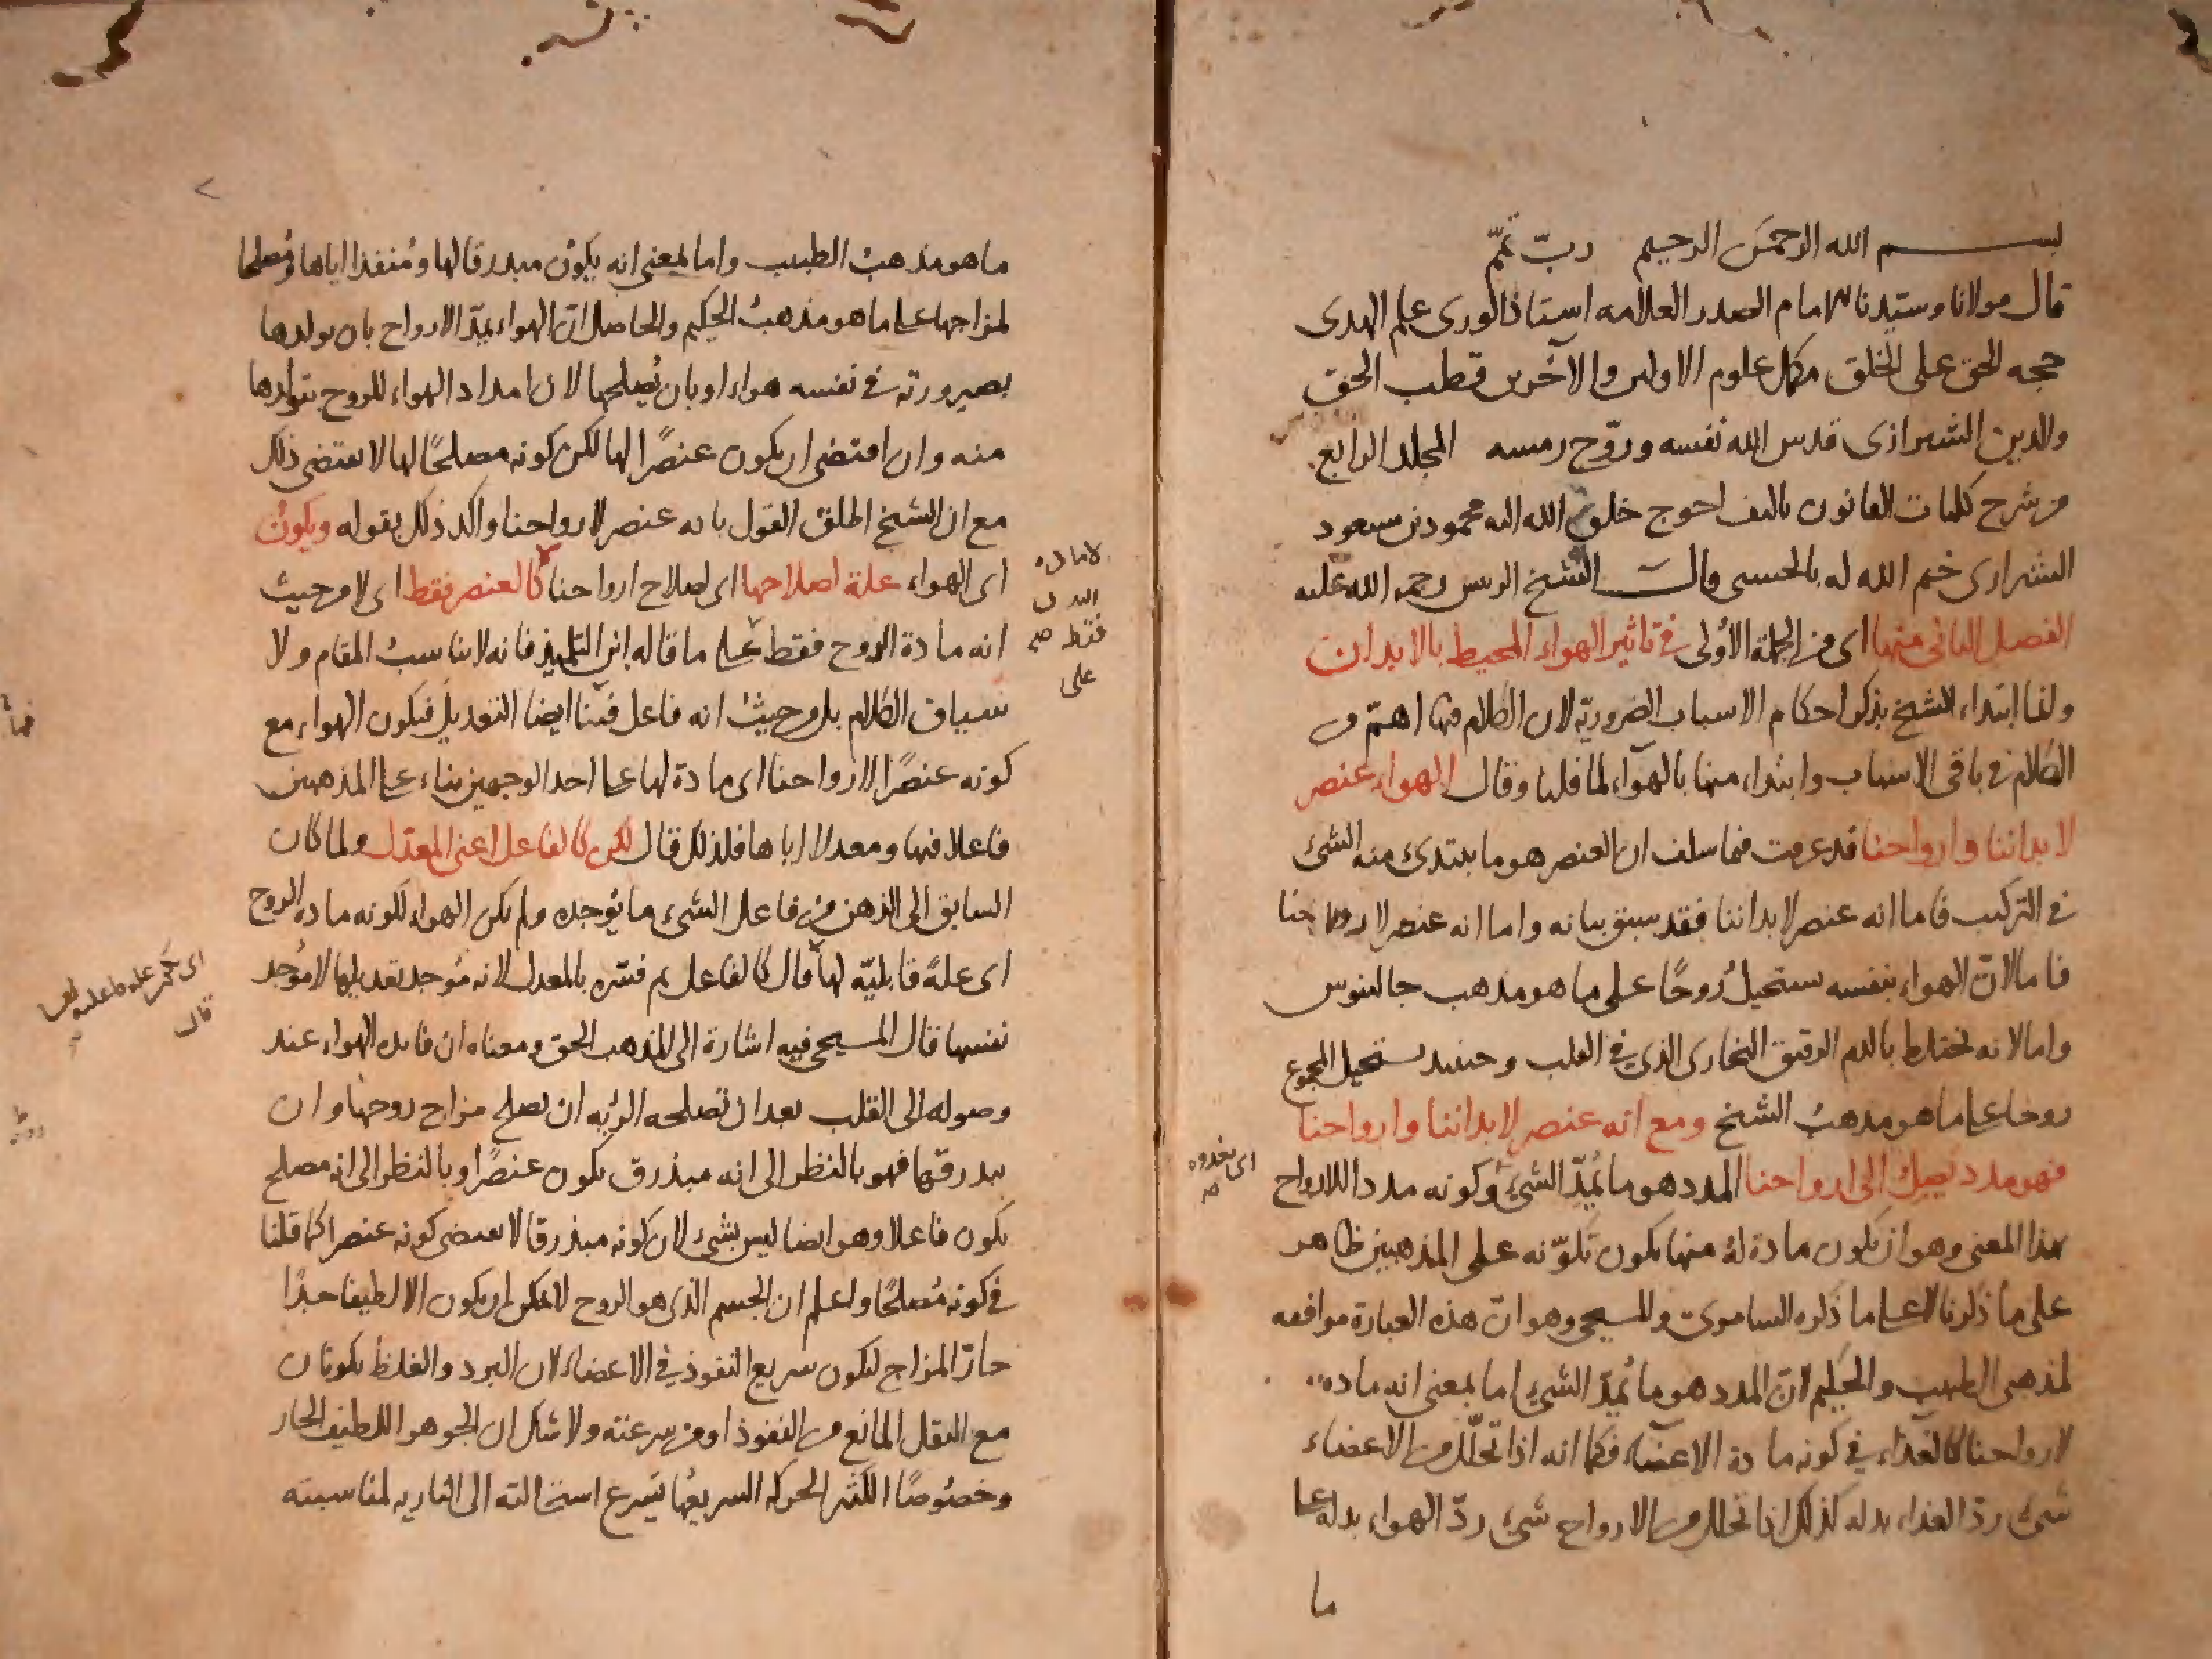 بسم الله الرحمن الرحيم رب تمم
قال مولانا وسيدنا الامام الصدر العلامه استاذ الورى علم الهدى
حجه الحق على الخلق مكمل علوم الاولين والآخرين قطب الحق
والدين الشيرازى قدس الله نفسه وروّح رمسه المجلد الرابع
من شرح كليات القانون تاليف احوج خلق الله اليه محمود بن مسعود
الشيرازى ختم الله له بالحسنى قال الشيخ الرئيس رحمه الله عليه
الفصل الثانى منها اى من الجملة الأولى فى تاثير الهواء المحيط بالابدان
ولفا ابتداء الشيخ بذكر احكام الاسباب الضرورية لان الكلام فيها اهمّ من
الكلام فى باقى الاسباب وابتداء منها بالهواء لما قلنا وقال الهواء عنصر
لابداننا وارواحنا قد عرفت فيما سلف ان العنصر هو ما يبتدئ منه الشئ
فى التركيب فاما انه عنصر لابداننا فقد سبق بيانه واما انه عنصر لارواحنا
فاما لانّ الهواء بنفسه يستحيل رُوحًا على ما هو مذهب جالينوس
واما لانه يختلط بالدم الرقيق البخارى الذى فى القلب وحينئذ يستحيل المجموع
روحا على ما هو مذهب الشيخ ومع انه عنصر لابداننا وارواحنا
فهو مدد يصل الى ارواحنا المدد هو ما يُمِدّ الشئ وكونه مددا للارواح
اى يغذوه
بهذا المعنى وهو ان يكون مادة لهُ منها يكون تكوّنه على المذهبين ظاهر
على ما ذكرنا لا على ما ذكره السامرى والمسيحى وهو انّ هذه العبارة موافقه
لمذهبى الطبيب والحكيم لانّ المدد هو ما يُمِدّ الشئ اما بمعنى انه ماده
لارواحنا كالغذاء فى كونه مادة الاعضاء فكما انه اذا تحلّل من الاعضاء
شئ ردّ الغذاء بدله كذلك اذا تحلل من الارواح شئ ردّ الهواء بدله على
ما
ما هو مذهبُ الطبيب واما بمعنى انه يكون مبدرقا لها ومُنفذا اياها ومُصلحا
لمزاجها على ما هو مذهبُ الحكيم والحاصل انّ الهواء يمدّ الارواح بان يولدها
بصيرورته فى نفسه هواء او بان يُصلحها لان امداد الهواء للروح بتولدها
منه وان اقتضى ان يكون عنصرًا لها لكن كونه مصلحًا لها لا يقتضى ذلك
مع ان الشيخ اطلق القول بانه عنصر لارواحنا واكد ذلك بقوله ويكون
اى الهواء علة اصلاحها اى اصلاح ارواحنا لا كالعنصر فقط اى لا من حيث
لاماده
البدن
فقط صح
على
انه مادة الروح فقط على ما قاله ابن التلميذ فانه لا يناسبُ المقام ولا
سياق الكلام بل من حيث انه فاعل فينا ايضا التعديل فيكون الهواء مع
كونه عنصرًا لارواحنا اى مادة لها على احد الوجهين بناء على المذهبين
فاعلا فيها ومعدلا اياها فلذلك قال لكن كالفاعل اعنى المعدّل ولما كان
السابق الى الذهن من فاعل الشئ ما يُوجده ولم يكن الهواء لكونه مادة الروح
اى علةً قابليّة لها قال كالفاعل ثم فسّره بالمعدل لانه مُوجد تعديلها لا مُوجد
قال
نفسها قال المسيحى فيه اشارة الى المذهب الحق ومعناه ان فايده الهواء عند
وصوله الى القلب بعد ان تصلحه الرئه ان يصلح مزاج روحها وان
يبدرقها فهو بالنظر الى انه مبذرق يكون عنصرًا وبالنظر الى انه مصلح
يكون فاعلا وهو ايضا ليس بشئ لان كونه مبذرقا لا يقتضى كونه عنصرا كما قلنا
فى كونه مُصلحًا واعلم ان الجسم الذى هو الروح لا يمكن ان يكون الا لطيفا جدًا
حارّ المزاج ليكون سريع النفوذ فى الاعضاء لان البرد والغلظ يكونان
مع الثقل المانع من النفوذ او من سرعته ولا شك ان الجوهر اللطيف الحار
وخصُوصًا الكثير الحركه السريعُها يَسرع استحالته الى الناريه لمناسبته